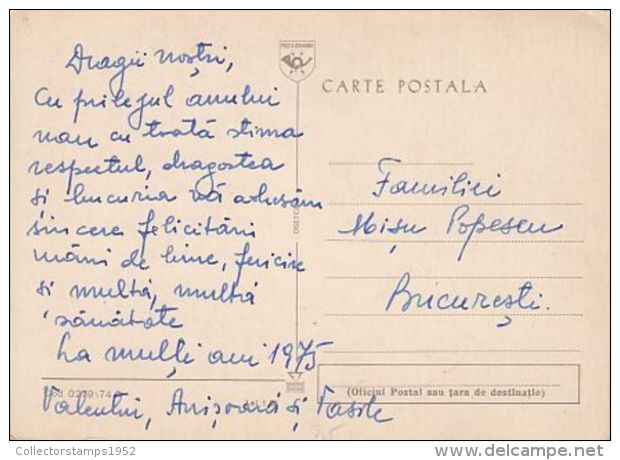 Dragii noștri,
Cu prilejul anului
nou cu toată stima
respectul, dragostea
și bucuria vă adresăm
sincere felicitări
mâini de bine, fericire
și multă, multă
sănătate
La mulți ani 1975
Valentin, Anișoară și Vasile
POȘTA ROMÂNĂ
CARTE POSTALA
Familiei
Mișu Popescu
București.
0249/74
(Oficiul Postal sau țara de destinație)
Collectorstamps1952
delcampe.net